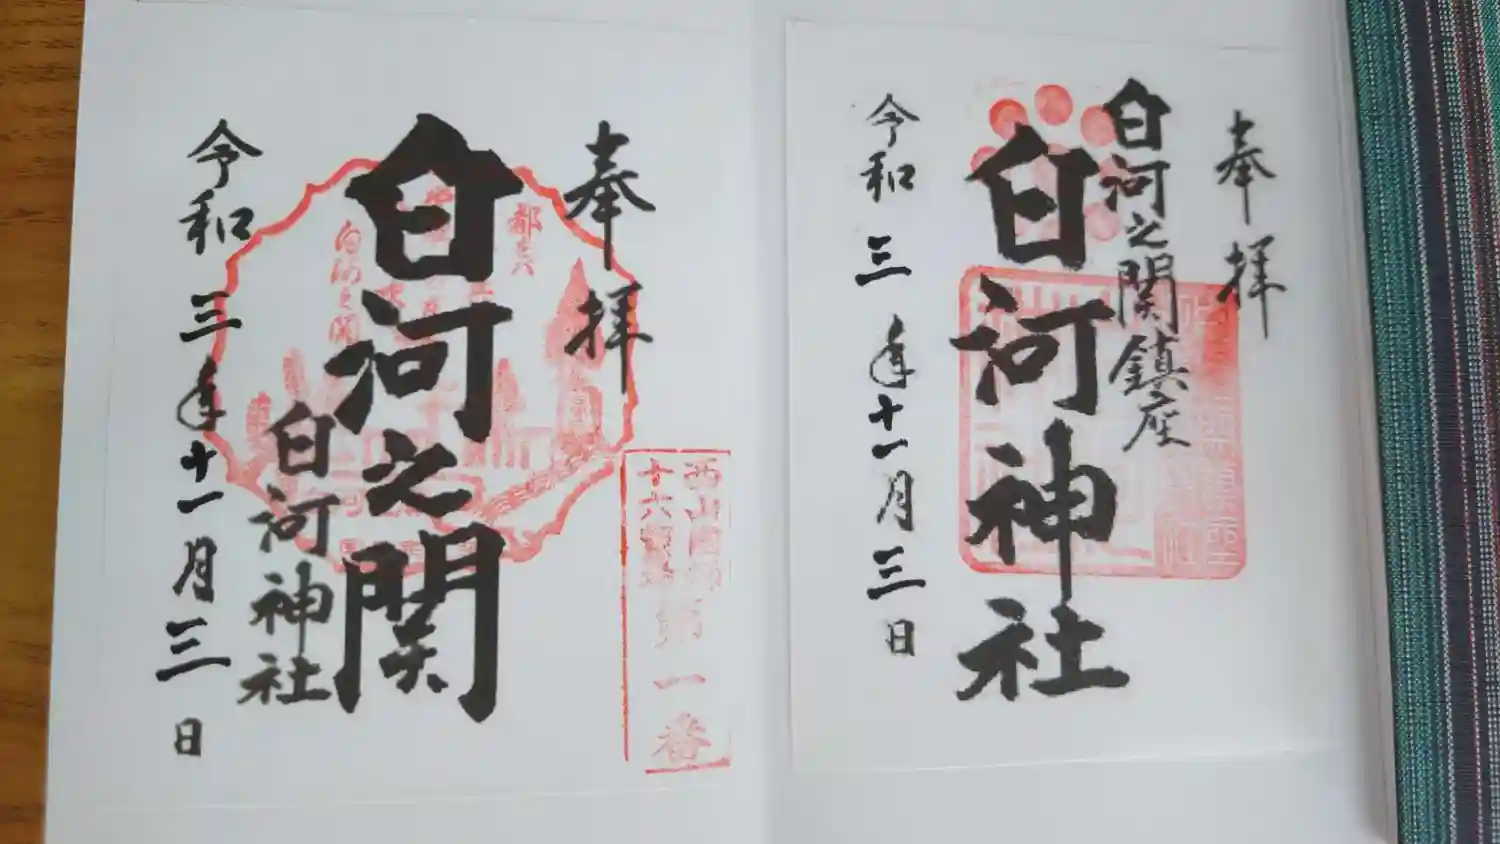 奉拝
白河之関鎮座
白河神社
令和三年十一月三日
奉拝
白河之関
白河神社
令和三年十一月三日
白河之関
第一番